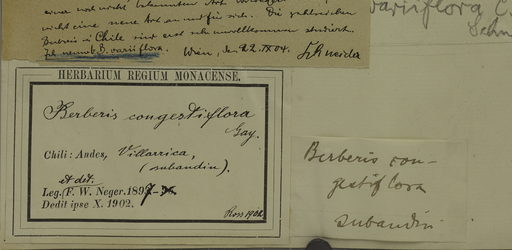 eine noch nicht bekannten Art
nicht eine neue Art an und für sich. Die gelblichen
Berberis in Chile sind erst sehr unvollkommen studiert.
Ich nenne b B. variiflora. Wien, den 22. IX 04. Schneider
variiflora C.
Schn
HERBARIUM REGIUM MONACENSE.
Berberis congestiflora
Gay.
Chili: Andes, Villarrica,
(subandin).
et dit.
Leg. F. W. Neger. 1897
Dedit ipse X. 1902.
Ross 1902
Berberis con-
gestiflora
subandin